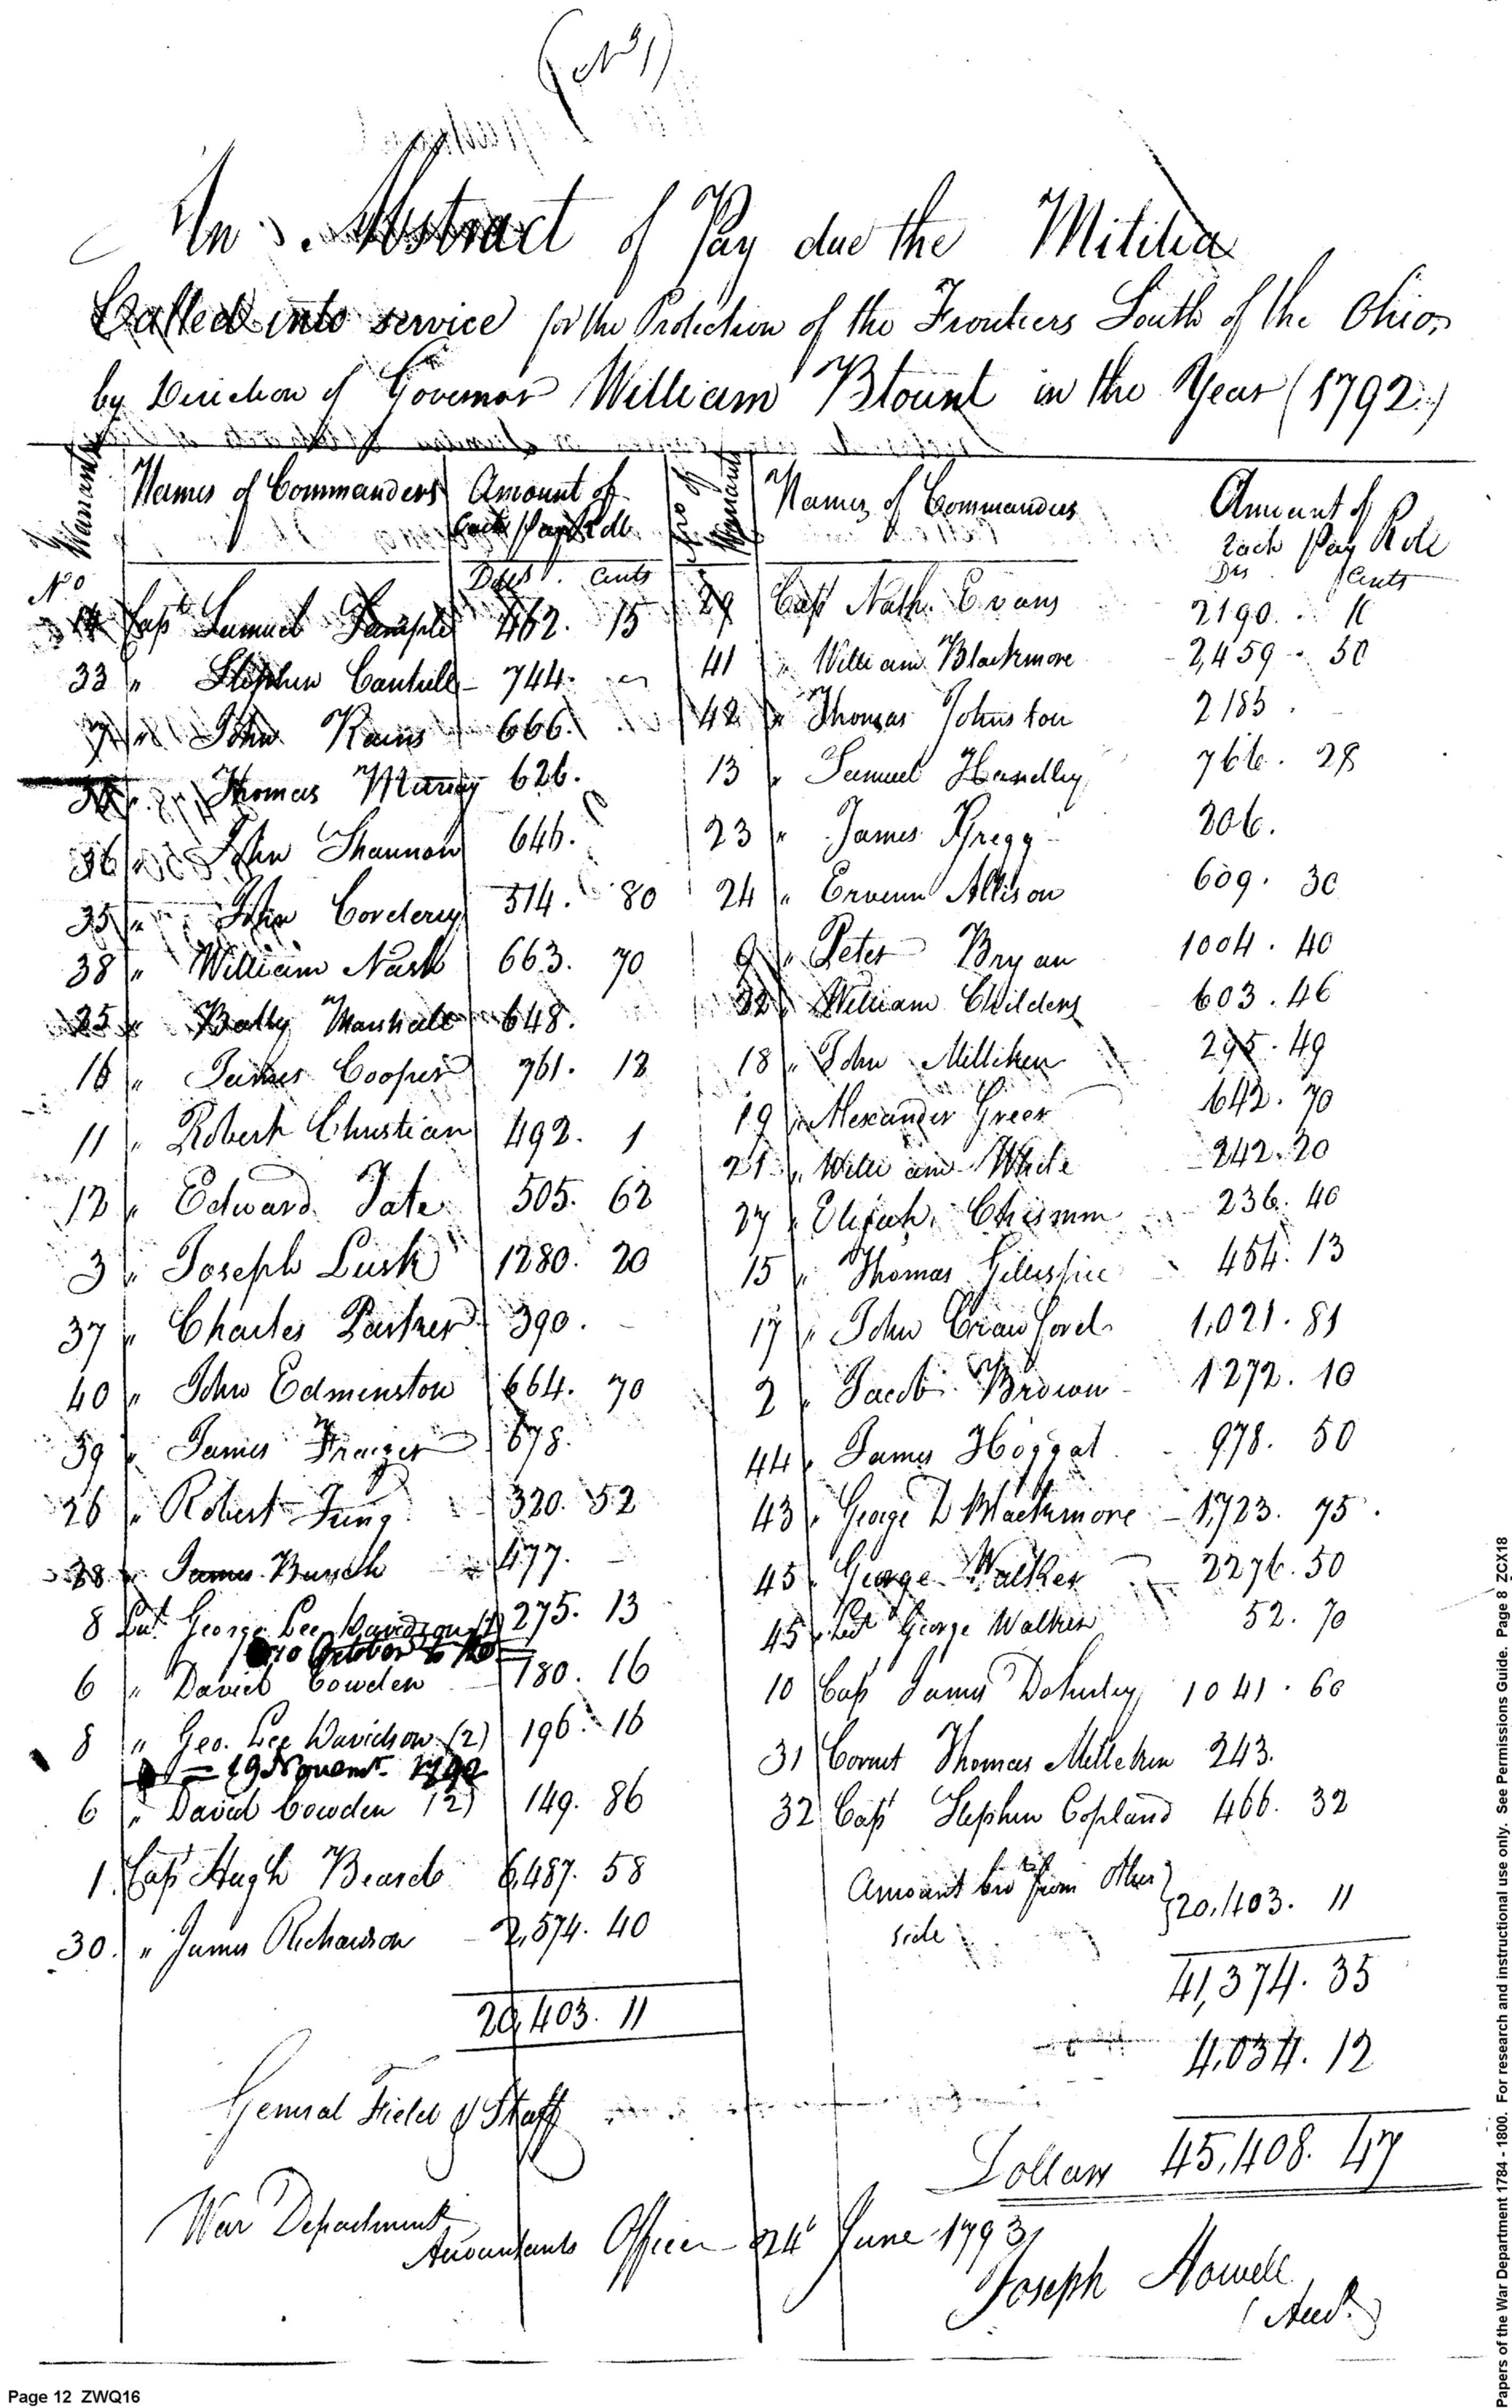 (No 1)
An Abstract of Pay due the Militia
Called into service for the Protection of the Frontiers South of the Ohio,
by Direction of Governor William Blount in the Year (1792)
Warrants Names of Commanders Amount of No of Warrants Names of Commanders Amount of
Each Pay Roll Each Pay Role
No Dols Cents Drs Cents
Capt Samuel 462. 15 29 Capt Nath. Evans 2190.
33 " Stephen Cantrell 744. 41 " William Blackmore 2,459 . 50
" John Rains 666. 42 " Thomas Johnston 2183 .
Thomas Murray 626. 13 " Samuel Handley 766. 28
36 " John Shannon 646. 23 " James Gregg 206.
35 " John Corderey 514. 80 24 " Allison 609. 30
38 " William Nash 663. 70 9 " Peter Bryan 1004. 40
25 " Marshall 648. " William Childers 603. 46
16 " James Cooper 761. 12 18 " John Milliken 295. 49
11 " Robert Christian 492. 1 19 " Alexander Greer 642. 70
12 " Edward Tate 505. 62 21 " William White 242. 20
3 " Joseph Lusk 1280. 20 27 " Elijah Chisumm 236. 40
37 " Charles Parker 390. 15 " Thomas Gillespie 454. 13
40 " John Edminston 664. 70 17 " John Crawford 1,021. 81
39 " James Frazier 678. 2 " Jacob Brown 1272. 10
26 " Robert 320. 52 44 " James Hoggat 978. 50
28 " James 477. 43 " George D Blackmore 1,723. 75
8 Lut. George Lee Davidson (1) 275. 13 45 " George Walker 2276. 50
10 October to
6 " David Cowden 180. 16 45 " Lut George Walker 52. 70
8 " Geo. Lee Davidson (2) 196. 16 10 Capt James Doherty 1041. 60
= 19 Novemr. 1792
6 " David Cowden (2) 149. 86 31 Cornet Thomas Milleken 243.
1 Capt Hugh Beard 6,487. 58 32 Capt Stephen Copland 466. 32
30. " James Richardson 2,574. 40 Amount bro from Other side 20,403. 11
20,403. 11 41,374. 35
General Field & Staff 4,034. 12
Dollars 45,408. 47
War Department
Accountants Office 24 June 1793
Joseph Howell
Acct.
Page 12 ZWQ16
Papers of the War Department 1784 - 1800. For research and instructional use only. See Permissions Guide. Page 8 ZCX18